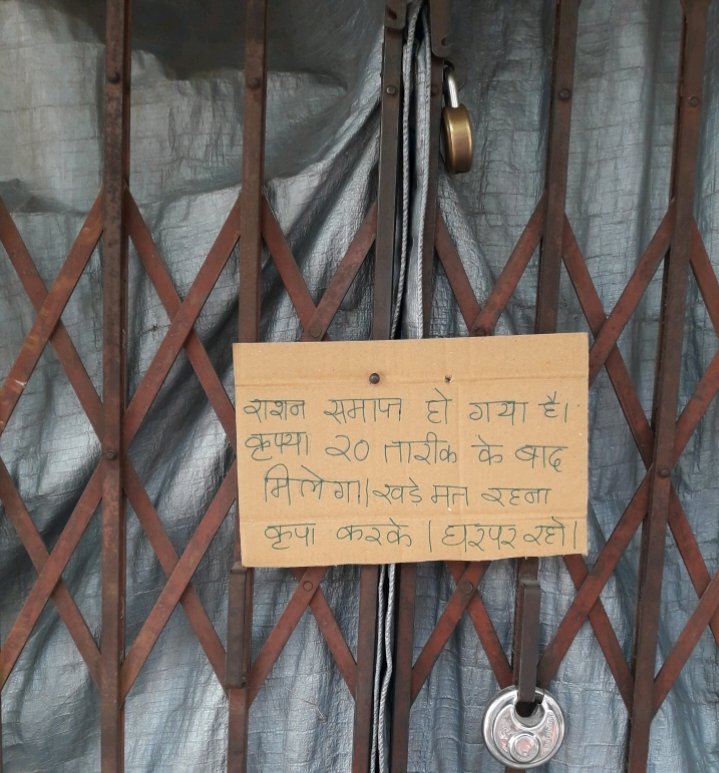 राशन समाप्त हो गया है।
कृपया २० तारीक के बाद
मिलेगा।खडे मत रहना
कृपा करके । घरपर रहो।